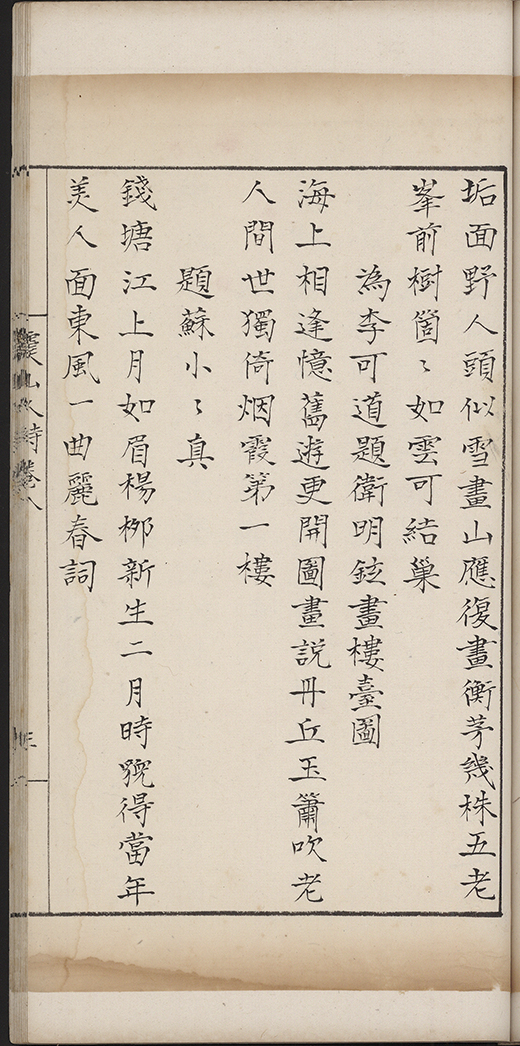 垢面野人頭似雪畫山應復畫衡茅幾株五老
峯前樹箇〻如雲可結巢
為李可道題衛明鉉畫樓臺圖
海上相逢憶舊遊更開圖畫説丹丘玉簫吹老
人間世獨倚烟霞第一樓
題蘇小〻真
錢塘江上月如眉楊栁新生二月時貌得當年
美人面東風一曲麗春詞
霞山人詩卷八